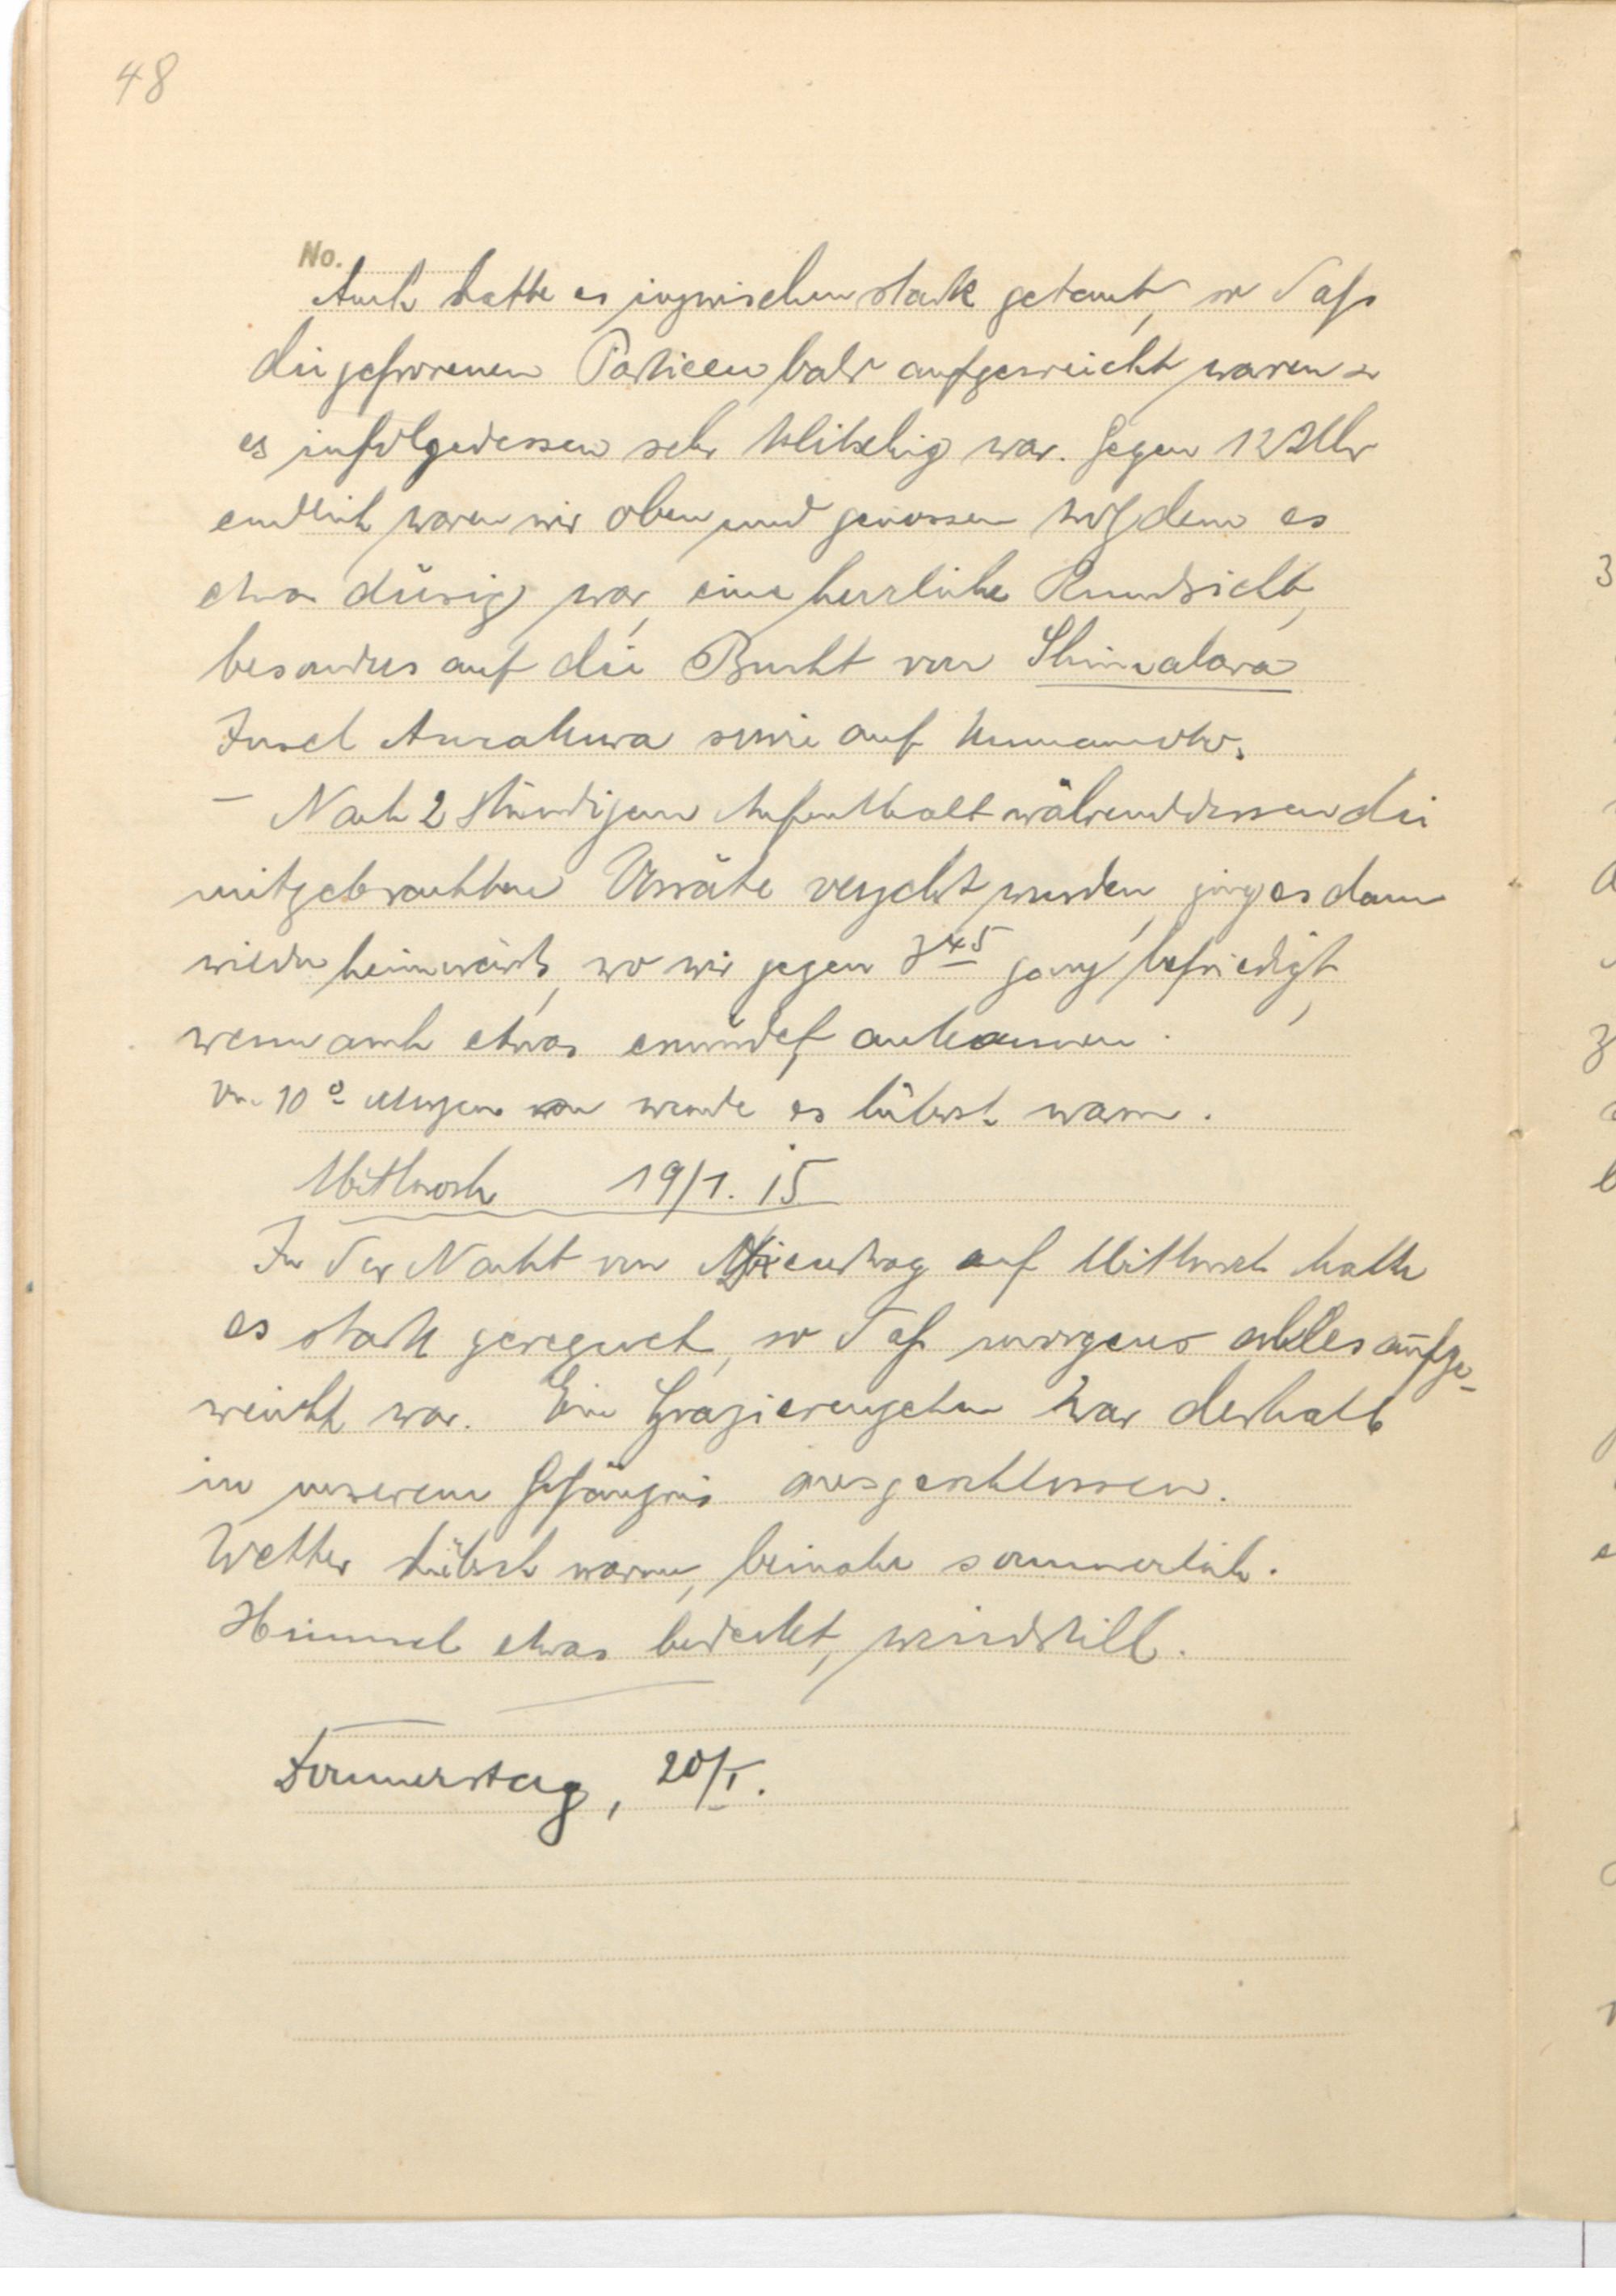 48
No.
Auch hatte es inzwischen stark getaut, so dass
die gefrorenen Partieen bald aufgeweicht waren u
es infolgedessen sehr klitschig war. Gegen 12 Uhr
endlich waren wir oben und genossen trotzdem es
etwas diesig war, eine herrliche Rundsicht,
besonders auf die Bucht von Shimabara
Insel Amakusa sowie auf Kumamoto.
– Nach 2 stündigem Aufenthalt währenddessen die
mitgebrachten Vorräte verzehrt wurden, ging es dann
wieder heimwärts, wo wir gegen 3 45 ganz befriedigt,
wenn auch etwas ermüdet ankamen.
Von 10 0 Morgens wurde es hübsch warm.
Mittwoch 19/1. 15
In der Nacht von Dienstag auf Mittwoch hatte
es stark geregnet, so daß morgens alles aufge-
weicht war. Ein Spazierengehen war deshalb
in unserem Gefängnis ausgeschlossen.
Wetter hübsch warm, beinahe sommerlich.
Himmel etwas bedeckt, windstill.
Donnerstag, 20/I.